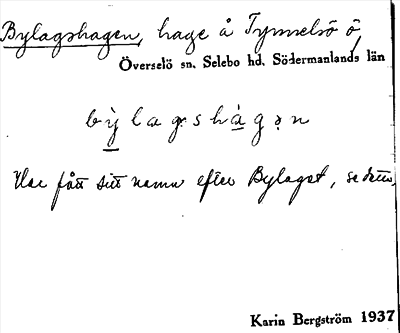 Bylagshagen, hage å Tynnelsö ö,
Överselö sn. Selebo hd. Södermanlands län
bỳlagshàgən
Har fått sitt namn efter Bylaget, se detta.
Karin Bergström 1937